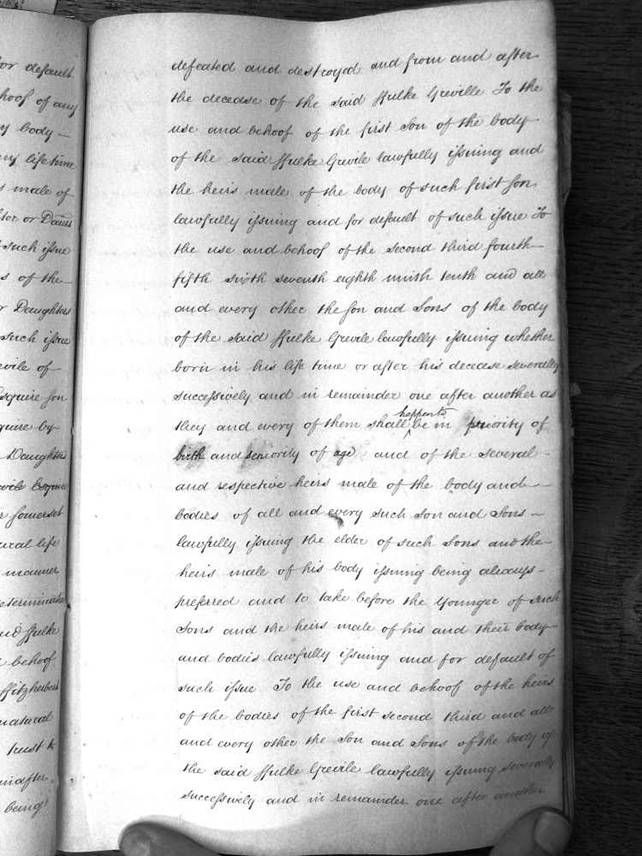 or default
hoof of any
y body —
my life time
s male of
ter or Daurs
such issue
s of the —
r Daughters
such issue
evile of —
Esquire son
quire by
Daughter
evile Esquire
r Somerset
ural life
manner
eterminate
aid ffulke
behoof
ffitzherbert
natural
trust to
inafter
being
defeated and destroyed and from and after
the decease of the said ffulke Greville To the
use and behoof of the first Son of the body
of the said ffulke Grevile lawfully issuing and
the heirs male of the body of such first son
lawfully issuing and for default of such issue To
the use and behoof of the second third fourth —
fifth sixth seventh eighth ninth tenth and all
and every other the son and Sons of the body
of the said ffulke Grevile lawfully issuing whether
born in his life time or after his decease severally
successively and in remainder one after another as
happen to
they and every of them shall ^ be in priority of
birth and seniority of age and of the several —
and respective heirs male of the body and —
bodies of all and every such son and Sons —
lawfully issuing the elder of such Sons and the —
heirs male of his body issuing being always —
preferred and to take before the Younger of such
Sons and the heirs male of his and their body
and bodies lawfully issuing and for default of
such issue To the use and behoof of the heirs
of the bodies of the first second third and all
and every other the Son and Sons of the body of
the said ffulke Grevile lawfully issuing severally
successively and in remainder one after another